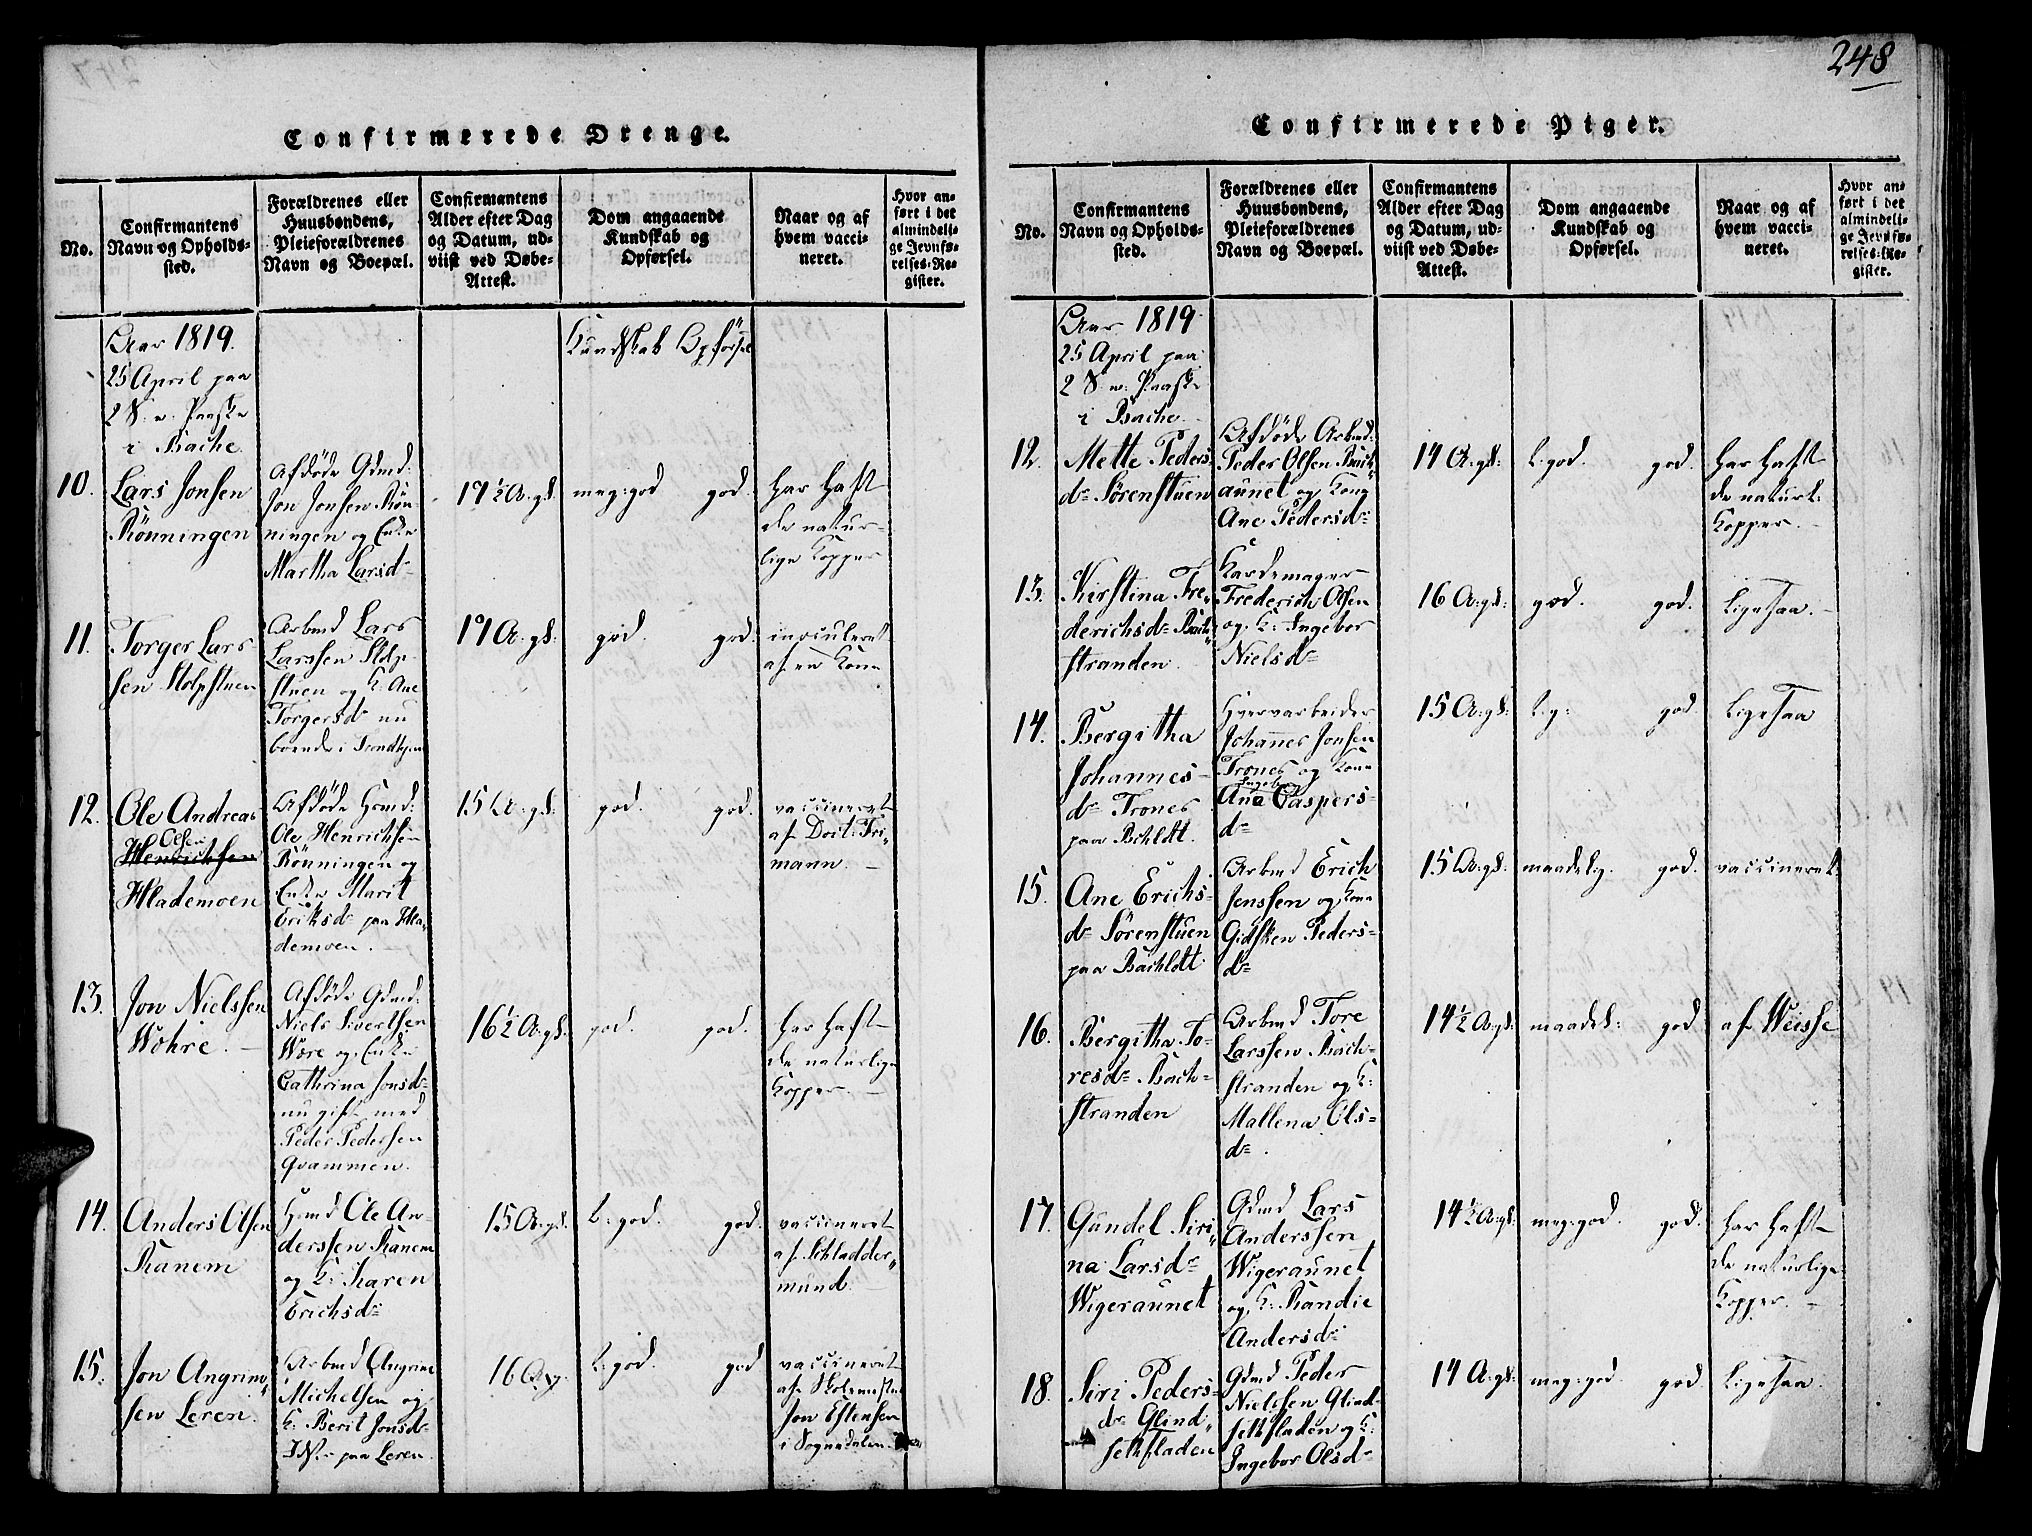 248
Confirmerede Drenge.
No.
Confirmantens
Navn og Opholds-
sted.
Forældrenes eller
Huusbondens,
Pleieforældrenes
Navn og Boepæl.
Confirmantens
Alder efter Dag
og Datum, ud-
viist ved Døbe-
Attest.
Dom angaaende
Kundskab og
Opførsel.
Naar og af
hvem vacci-
neret.
Hvor an-
ført i det
almindeli-
ge Jevnfø-
relses-Re-
gister.
Aar 1819.
25 April paa
2 S. e. Paaske
i Bache
Kundskab Opførsel
10.
Lars Jonsen
Rönningen
Afdöde Gdmd:
Jon Jonsen Rön-
ningen og Enke
Martha Larsd=
17 1/2 A: gl.
meg: god god.
har haft
de natur-
lige Kopper
11.
Torger Lars-
sen Stolpstuen
Arbmd Lars
Larssen Stolp-
stuen og K: Ane
Torgersd= nu
boende i Trondhjem
17 A: gl.
god. god.
inoculeret
af en Kone
12.
Ole Andreas
Olsen
Henrichsen
Hlademoen
Afdöde Hsmd:
Ole Henrichsen
Rönningen og
Enke Marit
Eriksd= paa Hla-
demoen.
15 A: gl:
god. god.
vaccineret
af Doct: Tri-
mann.
13.
Jon Nielssen
Wohre.
Afdöde Gdmd:
Niels Sivertsen
Wore og Enke
Cathrina Jonsd=
nu gift med
Peder Pedersen
Qvammen.
16 1/2 A: gl.
god. god.
har haft
de naturlige
Kopper.
14.
Anders Olsen
Ranem
Hsmd Ole An-
derssen Ranem
og K: Karen
Erichsd=
15 A: gl.
t: god. god.
vaccineret
af Schladder-
mund.
15.
Jon Angrim-
sen Leren.
Arbmd Angrim
Michelsen og
K: Berit Jonsd=
paa Leren.
16 A: g.
t: god. god
vaccineret
af Skolemester
Jon Estensen
i Sognedalen.
Confirmerede Piger.
No.
Confirmantens
Navn og Opholds-
sted.
Forældrenes eller
Huusbondens,
Pleieforældrenes
Navn og Boepæl.
Confirmantens
Alder efter Dag
og Datum, ud-
viist ved Døbe-
Attest.
Dom angaaende
Kundskab og
Opførsel.
Naar og af
hvem vacci-
neret.
Hvor an-
ført i det
almindeli-
ge Jevnfø-
relses-Re-
gister.
Aar 1819
25 April paa
2 S. e. Paaske
i Bache
12.
Mette Peders-
d= Sörenstuen
Afdöde Arbmd:
Peder Olsen Bach-
aunet og Kone
Ane Pedersd=
14 A: gl:
t: god. god.
har haft
de naturl:
Kopper.
13.
Kirstina Fre-
derichsd= Bach-
stranden.
Kardemager
Frederich Olsen
og K: Ingebor
Nielsd=
16 A: gl:
god. god.
Ligesaa.
14.
Bergitha
Johannes-
d= Trones
paa Bachlott.
Johannes Jonsen
Trones og Kone
Ingebor
Ane Caspers-
d=
15 A: gl:
t: g: god.
Ligesaa
15.
Ane Erichs-
d= Sörenstuen
paa Bachlott
Arbmd Erich
Jenssen og Kone
Gidsken Peders-
d=
15 A: gl:
maadelig. god.
vaccineret.
16.
Bergitha To-
resd= Bach-
stranden
Arbmd Tore
Larssen Bach-
stranden og K:
Mallena Ols-
d=.
14 1/2 A: gl:
maadel: god
af Weisse
17.
Gundel Siri-
na Larsd=
Wigeraunet
Gdmd Lars
Anderssen
Wigeraunet
og K: Randie
Andersd=
14 1/2 A: gl:
meg: god. god.
har haft
de naturlige
Kopper.
18.
Siri Peders-
d= Glind-
sethfladen
Gdmd Peder
Nielssen Glind-
sethfladen og K:
Ingebor Olsd=
14 A: gl:
meg: god. god.
Ligesaa.